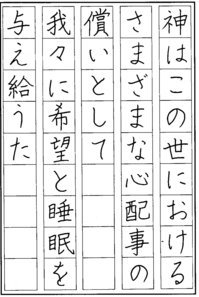 神はこの世における
さまざまな心配事の
償いとして
我々に希望と睡眠を
与え給うた